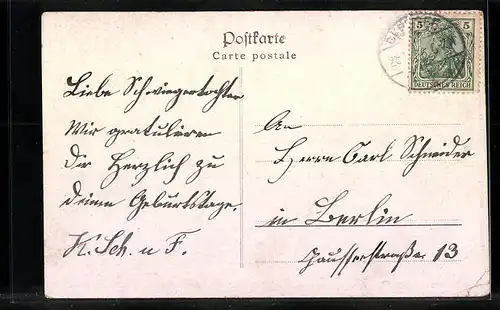 Postkarte
Carte postale
5 5
DEUTSCHES REICH
Liebe Schwiegertochter
Wir gratulieren
Dir Herzlich zu
deinem Geburtstage.
K. Sch. u F.
An
Herrn Carl Schneider
in Berlin
Gaußerstraße 13